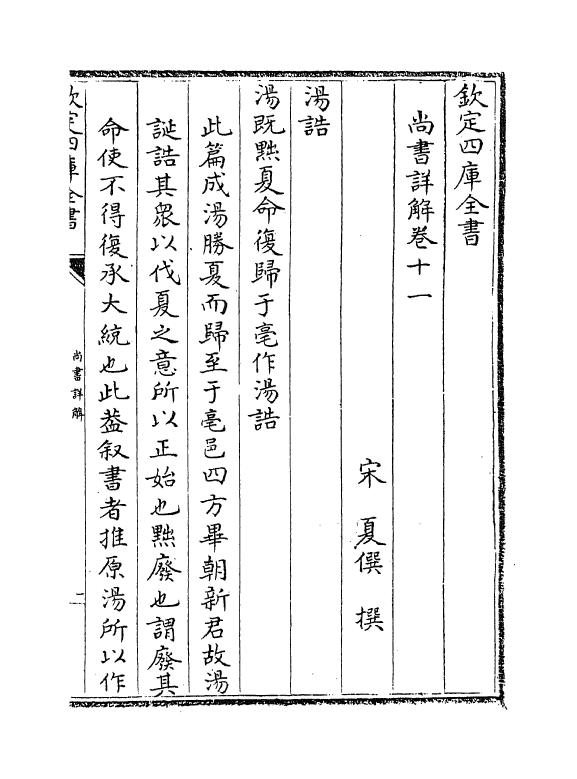 欽定四庫全書
尚書詳解卷十一
宋 夏僎 撰
湯誥
湯既黜夏命復歸于亳作湯誥
此篇成湯勝夏而歸至于亳邑四方畢朝新君故湯
誕誥其衆以伐夏之意所以正始也黜廢也謂廢其
命使不得復承大統也此葢叙書者推原湯所以作
欽定四庫全書
尚書詳解